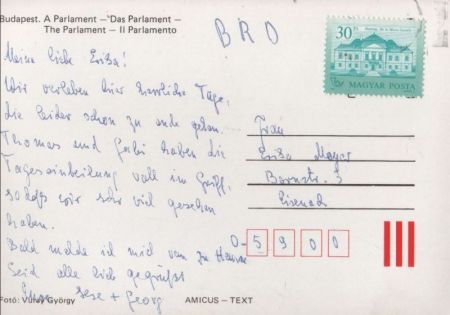 Budapest. A Parlament – Das Parlament –
The Parlament – Il Parlamento
BRD
30 Ft
MAGYAR POSTA
Meine liebe Erika!
Wir verleben hier herrliche Tage,
die leider schon zu ende gehen.
Thomas und Gabi haben die
Tageseinteilung voll im Griff,
sodaß wir sehr viel gesehen
haben.
Bald melde ich mich von zu Hause
Seid alle lieb gegrüßt
Eure + Georg
Frau
Erika Mayer
Bornstr. 3
Eisenach
0-5900
Fotó: Vúray György
AMICUS – TEXT